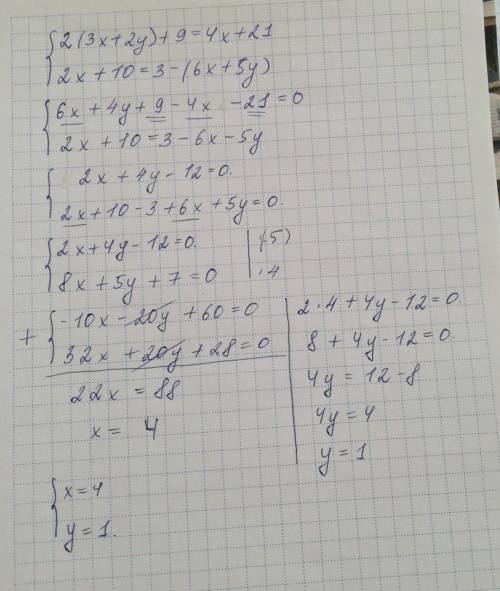 2(3x+2y)+9=4x+21
2x+10=3-(6x+5y)
6x+4y+9-4x-21=0
2x+10=3-6x-5y
2x+4y-12=0.
2x+10-3+6x+5y=0.
2x+4y-12=0. |·(-5)
8x+5y+7=0 |·4
+ -10x-20y+60=0
32x+20y+28=0
22x=88
x=4
2·4+4y-12=0.
8+4y-12=0.
4y=12-8
4y=4
y=1
x=4
y=1.